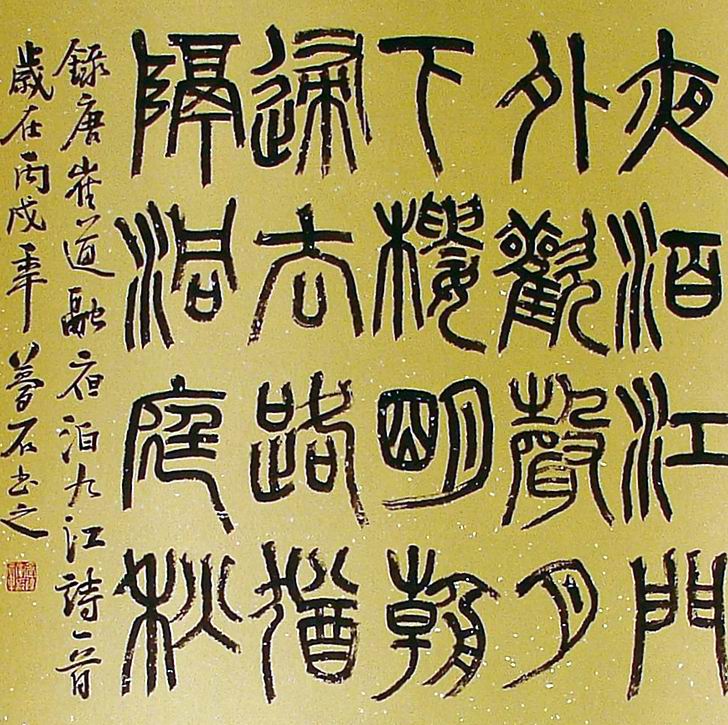 夜泊江門
外歡聲月
下樓明朝
歸去路猶
隔洞庭秋
錄唐崔道融夜泊九江詩一首
歲在丙戌年夢石書之